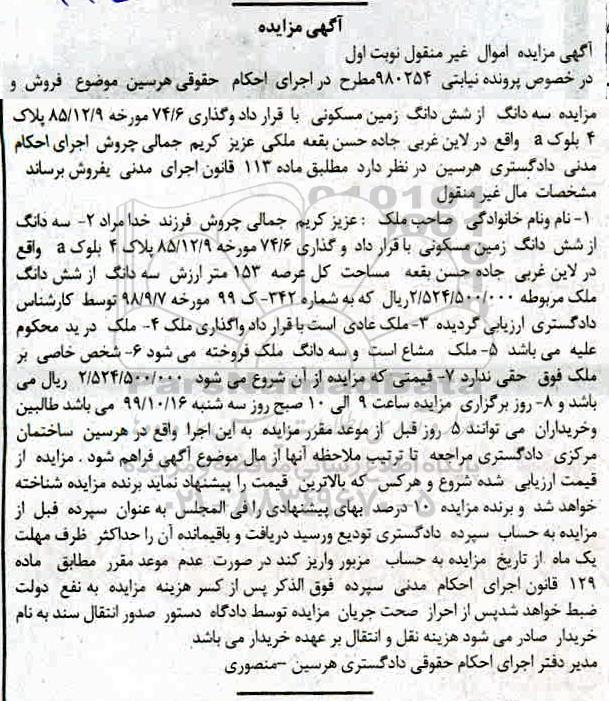 آگهی مزایده
آگهی مزایده اموال غیر منقول نوبت اول
در خصوص پرونده نیابتی ۹۸۰۲۵۴مطرح در اجرای احکام حقوقی هرسین موضوع فروش و
مزایده سه دانگ از شش دانگ زمین مسکونی با قرار داد وگذاری ۷۴/۶ مورخه ۸۵/۱۲/۹ پلاک
۴ بلوک a واقع در لاین غربی جاده حسن بقعه ملکی عزیز کریم جمالی چروش اجرای احکام
مدنی دادگستری هرسین در نظر دارد مطلبق ماده ۱۱۳ قانون اجرای مدنی بفروش برساند
مشخصات مال غیر منقول
۱- نام ونام خانوادگی صاحب ملک : عزیز کریم جمالی چروش فرزند خدا مراد ۲- سه دانگ
از شش دانگ زمین مسکونی با قرار داد و گذاری ۷۴/۶ مورخه ۸۵/۱۲/۹ پلاک ۴ بلوک a واقع
در لاین غربی جاده حسن بقعه مساحت کل عرصه ۱۵۳ متر ارزش سه دانگ از شش دانگ
ملک مربوطه ۲/۵۲۴/۵۰۰/۰۰۰ریال که به شماره ۳۴۲- ک ۹۹ مورخه ۹۸/۹/۷ توسط کارشناس
دادگستری ارزیابی گردیده ۳- ملک عادی است با قرار داد واگذاری ملک ۴- ملک در ید محکوم
علیه می باشد ۵- ملک مشاع است و سه دانگ ملک فروخته می شود ۶- شخص خاصی بر
ملک فوق حقی ندارد ۷- قیمتی که مزایده از آن شروع می شود ۲/۵۲۴/۵۰۰/۰۰۰ ریال می
باشد و ۸- روز برگزاری مزایده ساعت ۹ الی ۱۰ صبح روز سه شنبه ۹۹/۱۰/۱۶ می باشد طالبین
وخریداران می توانند ۵ روز قبل از موعد مقرر مزایده به این اجرا واقع در هرسین ساختمان
مرکزی دادگستری مراجعه تا ترتیب ملاحظه آنها از مال موضوع آگهی فراهم شود . مزایده از
قیمت ارزیابی شده شروع و هرکس که بالاترین قیمت را پیشنهاد نماید برنده مزایده شناخته
خواهد شد و برنده مزایده ۱۰ درصد بهای پیشنهادی را فی المجلس به عنوان سپرده قبل از
مزایده به حساب سپرده دادگستری تودیع ورسید دریافت و باقیمانده آن را حداکثر ظرف مهلت
یک ماه از تاریخ مزایده به حساب مزبور واریز کند در صورت عدم موعد مقرر مطابق ماده
۱۲۹ قانون اجرای احکام مدنی سپرده فوق الذکر پس از کسر هزینه مزایده به نفع دولت
ضبط خواهد شدپس از احراز صحت جریان مزایده توسط دادگاه دستور صدور انتقال سند به نام
خریدار صادر می شود هزینه نقل و انتقال بر عهده خریدار می باشد
مدیر دفتر اجرای احکام حقوقی دادگستری هرسین –منصوری